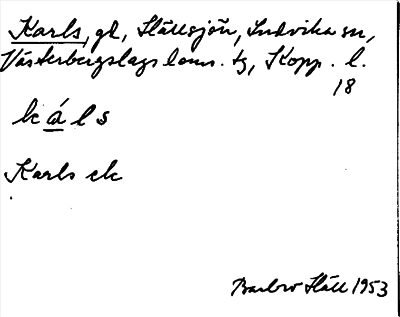 Karls, gd, Hällsjön, Ludvika sn,
Västerbergslags doms. tg, Kopp. l.
18
k á l s
Karls ek
Barbro Häll 1953